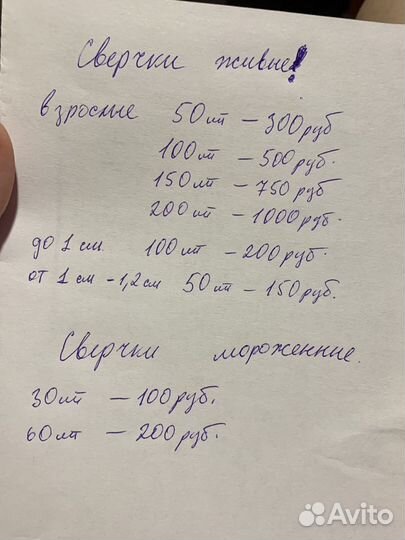 Сверчки живые!
взрослые 50шт – 300руб
100шт – 500руб.
150шт – 750руб
200шт – 1000руб.
до 1см 100шт – 200руб.
от 1см – 1,2см 50шт – 150руб.
Сверчки мороженные.
30шт – 100руб.
60шт – 200руб.
Avito